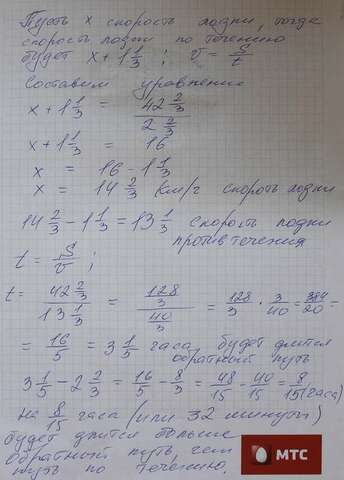 Пусть x скорость лодки, тогда
скорость лодки по течению
будет x + 1 1/3 ; v = S/t
Составим уравнение
x + 1 1/3 = 42 2/3 / 2 2/3
x + 1 1/3 = 16
x = 16 - 1 1/3
x = 14 2/3 км/г скороть лодки
14 2/3 - 1 1/3 = 13 1/3 скорость лодки
против течения
t = S/v ;
t = 42 2/3 / 13 1/3 = 128/3 / 40/3 = 128/3 · 3/40 = 384/20 =
= 16/5 = 3 1/5 часа будет длится
обратный путь
3 1/5 - 2 2/3 = 16/5 - 8/3 = 48/15 - 40/15 = 8/15 (часа)
на 8/15 часа (или 32 минуты)
будет длится больше
обратный путь, чем
путь по течению.
МТС